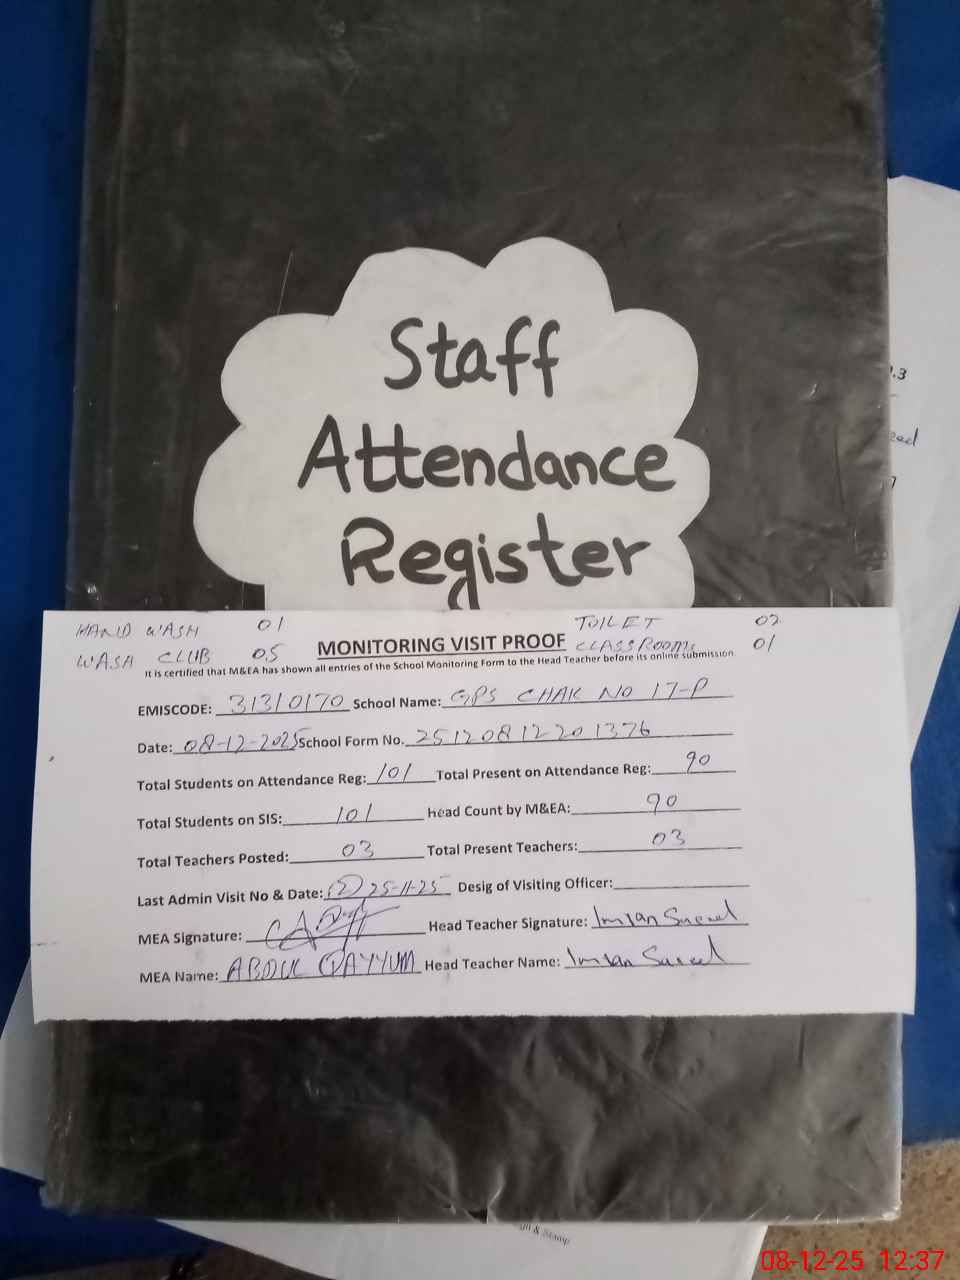 Staff
Attendance
Register
HAND WASH 01 TOILET 02
WASH CLUB 05 CLASSROOMS 01
MONITORING VISIT PROOF
It is certified that M&EA has shown all entries of the School Monitoring Form to the Head Teacher before its online submission
EMISCODE: 31310170 School Name: GPS CHAK NO 17-P
Date: 08-12-2025 School Form No. 25120812201376
Total Students on Attendance Reg: 101 Total Present on Attendance Reg: 90
Total Students on SIS: 101 head Count by M&EA: 90
Total Teachers Posted: 03 Total Present Teachers: 03
Last Admin Visit No & Date: (2) 25-11-25 Desig of Visiting Officer:
MEA Signature: Head Teacher Signature: Imran
MEA Name: ABDUL QAYYUM Head Teacher Name: Imran
& Stamp
08-12-25 12:37